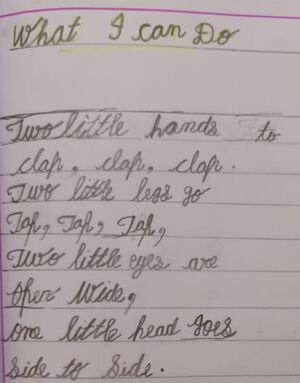 What I can Do
Two little hands to
clap, clap, clap.
Two little legs go
Tap, Tap, Tap,
Two little eyes are
open Wide,
one little head goes
side to side.